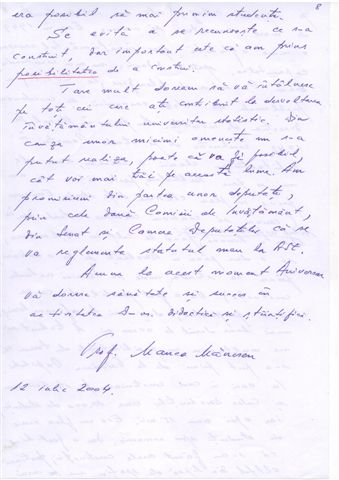 8
era posibil să mai primim studenți.
Se evită a se recunoaște ce s-a
construit, dar important este că am prins
posibilitatea de a construi.
Tare mult doream să vă întâlnesc
pe toți cei care ați contribuit la dezvoltarea
învățământului universitar statistic. Din
cauza unor micimi omenești nu s-a
putut realiza, poate că va fi posibil
cât voi mai trăi pe această lume. Am
promisiuni din partea unor deputați,
prin cele două Comisii de Învățământ,
din Senat și Camera Deputaților că se
va reglementa statutul meu la ASE.
Acum la acest moment Aniversar
vă doresc sănătate și succes în
activitatea D-vs. didactică și științifică.
Prof. Manea Mănescu
12 iulie 2004.